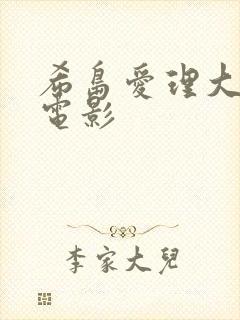 希島愛理大
電影
李家大兒